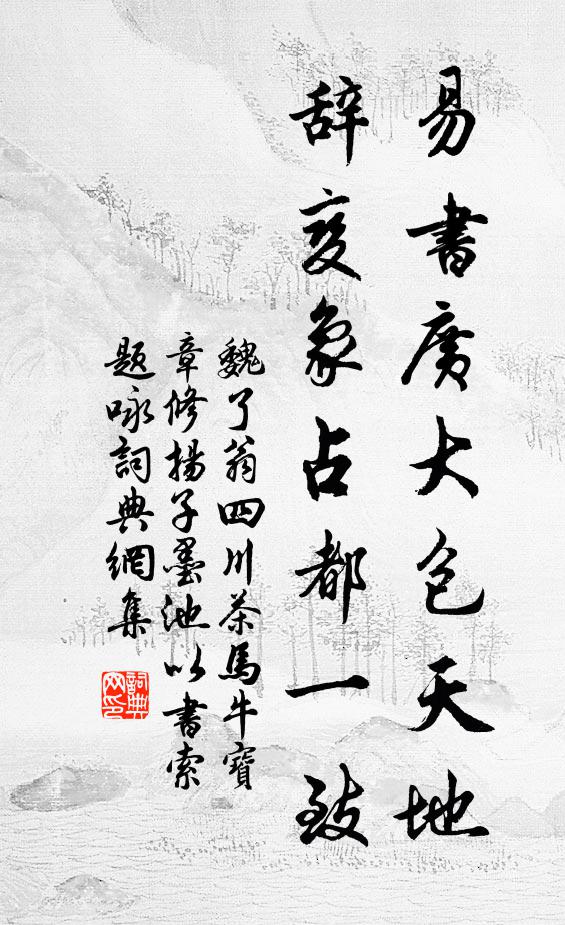 易書廣大包天地
辞变象占都一致
魏了翁四川茶馬牛寶
章修揚子墨池以書索
題咏詞典網集
詞典
网印